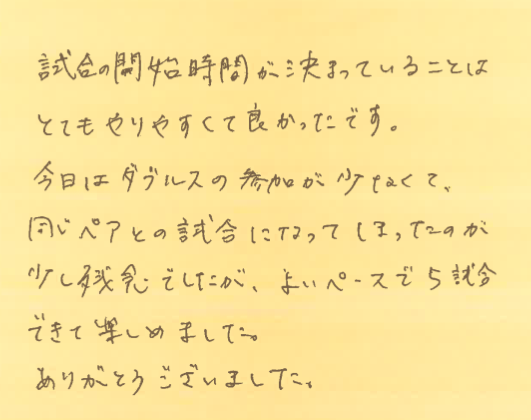 試合の開始時間が決まっていることは
とてもやりやすくて良かったです。
今日はダブルスの参加が少なくて、
同じペアとの試合になってしまったのが
少し残念でしたが、よいペースで5試合
できて楽しめました。
ありがとうございました。